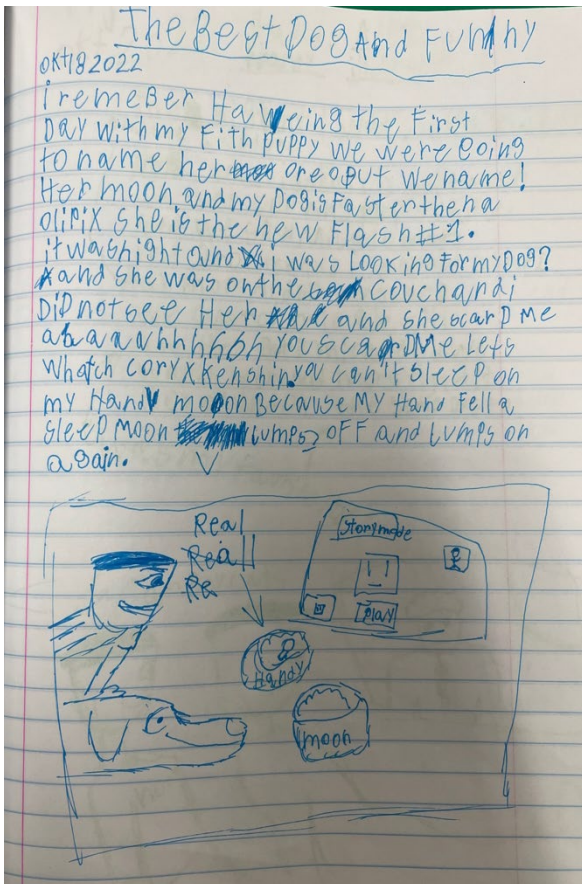 The Best Dog And Funny
OKt182022
i remeBer Haveing the First
Day with my Fith puppy we were Going
to name her oreo But we name!
Her moon, and my Dog is Faster then a
oliPiX she is the new Flash #1.
it was night and i was Looking For my Dog?
and she was on the couch and i
DiD not see Her and she scarD Me
ahaaahhhhhh you scarDMe Lets
whatch coryXKenshin, you can't Sleep on
my Hand moon Because My Hand Fell a
Sleep Moon Lumps OFF and Lumps on
again.
Real
Reall
Re
Storymode
Play
Handy
moon